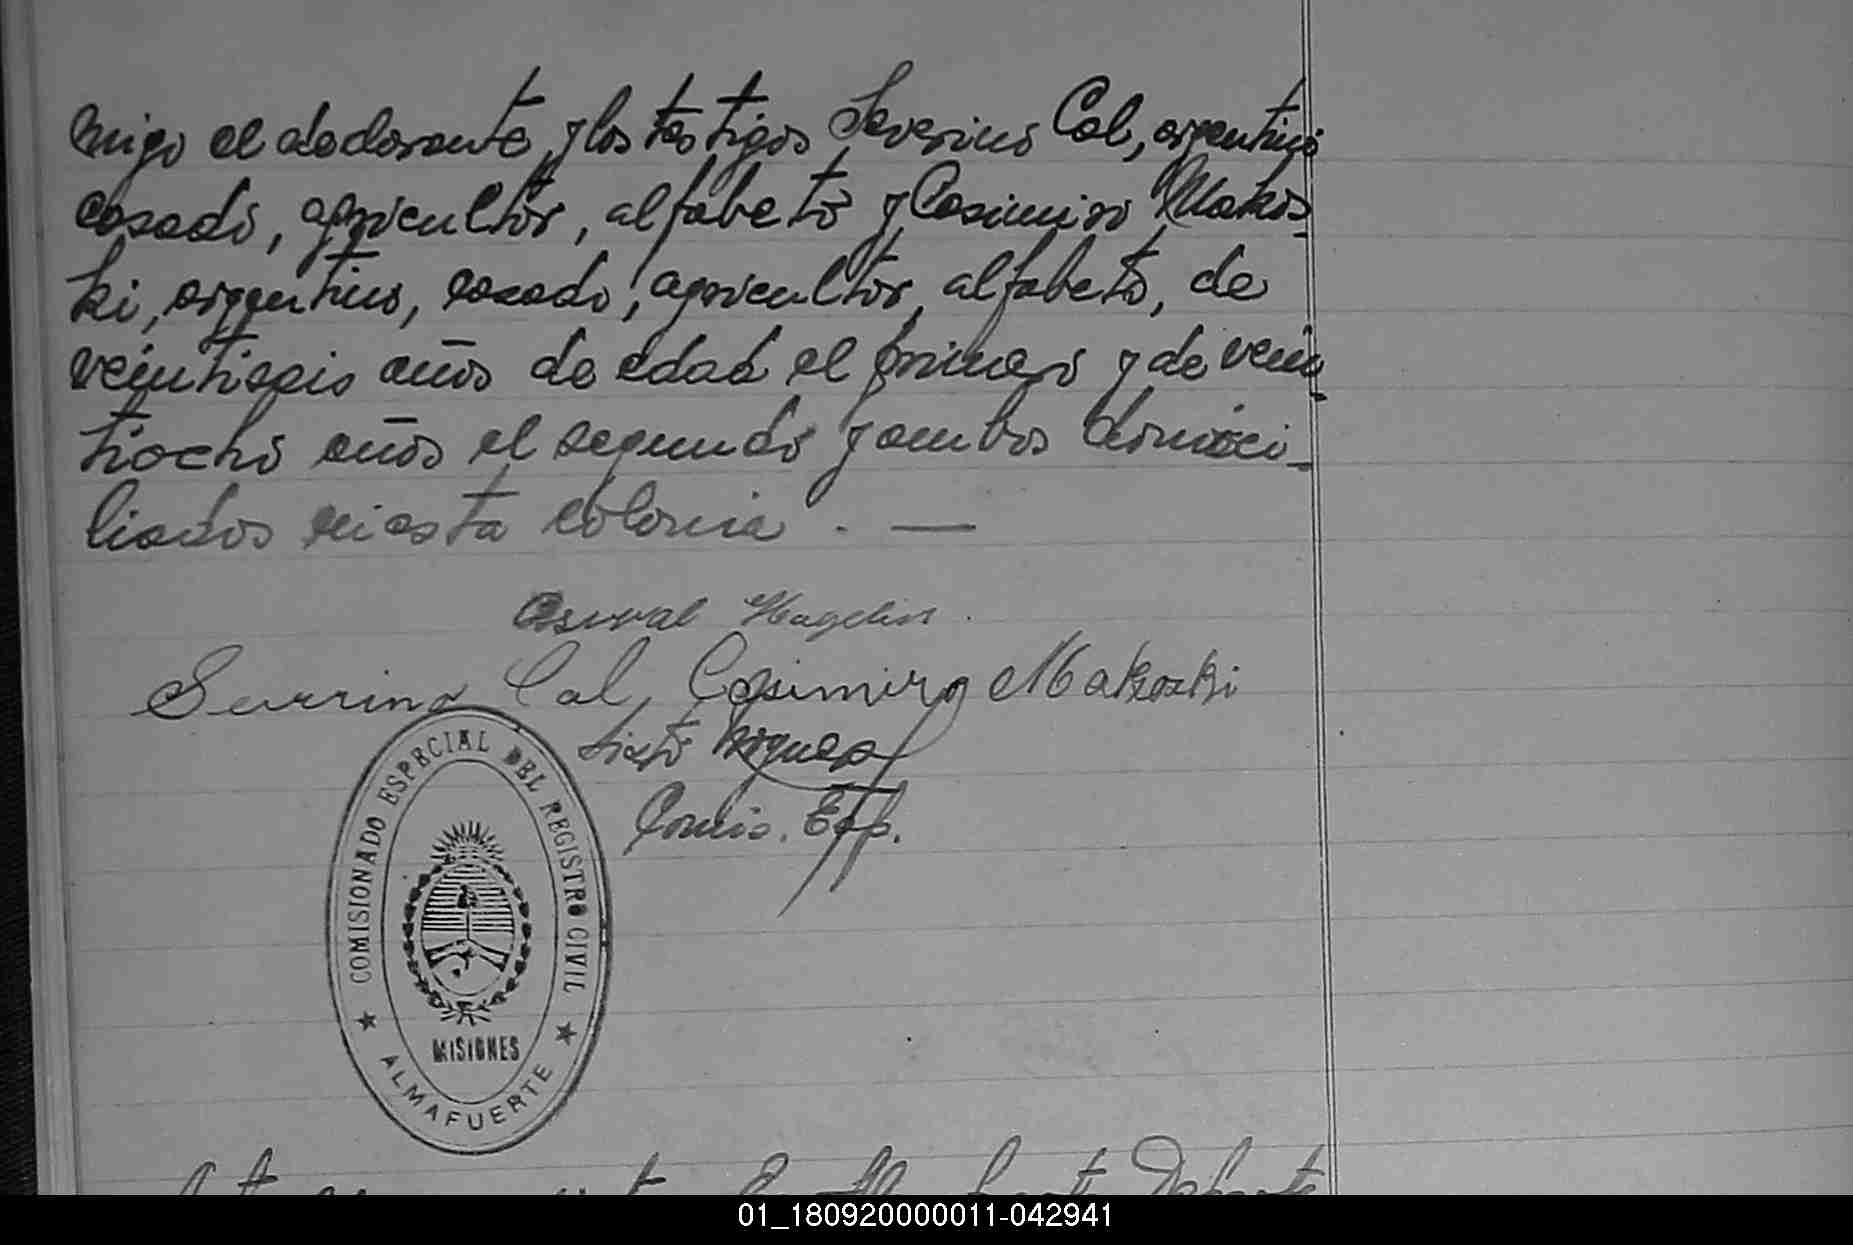 migo el declarante y los testigos Severino Cal, argentino
casado, agricultor, alfabeto y Casimiro Makos-
ki, argentino, casado, agricultor, alfabeto, de
veintiseis años de edad el primero y de vein-
tiocho años el segundo y ambos domici-
liados en esta colonia . —
Oswal Hagelin .
Severino Cal, Casimiro Makoski
Sixto
Comis. Esp.
COMISIONADO ESPECIAL DEL REGISTRO CIVIL
MISIONES
★ ALMAFUERTE ★
01_180920000011-042941